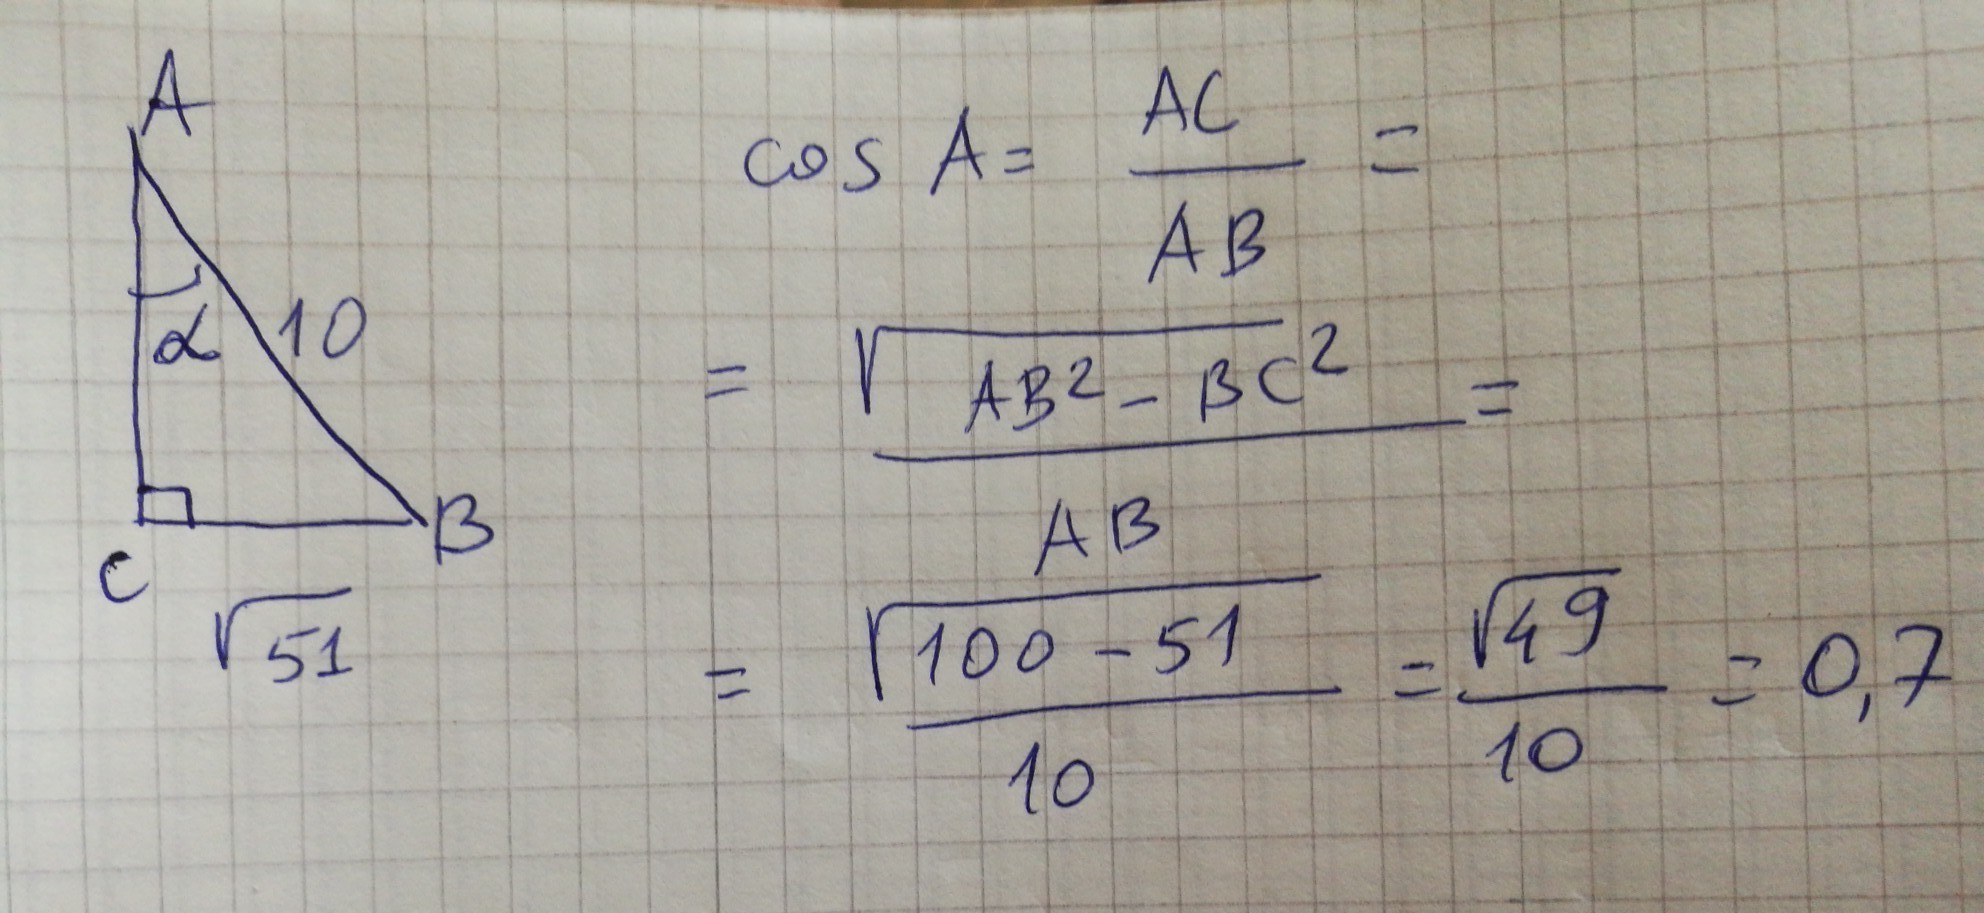 A
α 10
C B
√51
cos A = AC/AB =
= √(AB² - BC²)/AB =
= √(100 - 51)/10 = √49/10 = 0,7